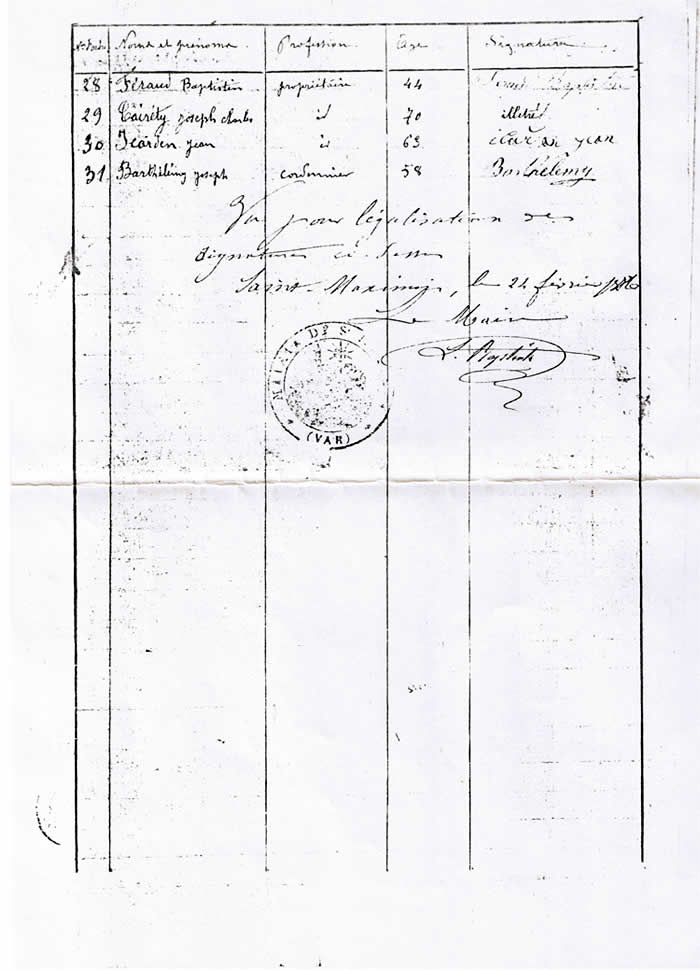 Noms et prénoms Profession Age Signature
28 Féraud Baptistin propriétaire 44
29 joseph charles id 70 illétré
30 Icarden jean id 63 jean
31 Barthélémy joseph cordonnier 58 Barthélemy
Vu pour légalisation des
signatures ci-dessus
Saint-Maximin, le 22 février
Le Maire
MAIRIE DE S
(VAR)